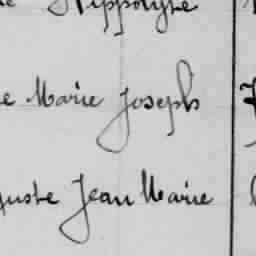 Hippolyte
Marie Joseph
Jean Marie